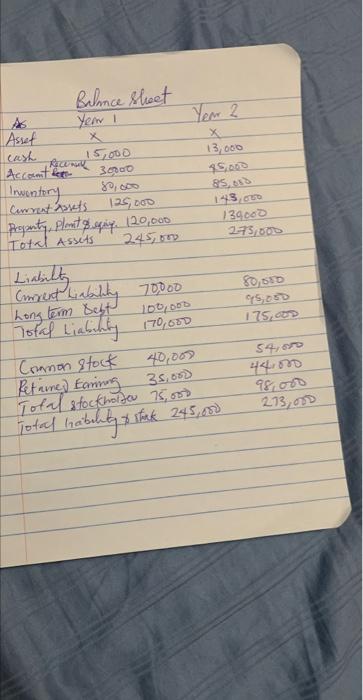 Balance Sheet
Year 1 Year 2
Asset X X
Cash 15,000 13,000
Account 30000 45,000
Inventory 80,000 85,000
Current Assets 125,000 143,000
Property, Plant & equip. 120,000 130000
Total Assets 245,000 273,000
Liability
Current Liability 70000 80,000
Long term Debt 100,000 95,000
Total Liability 170,000 175,000
Common Stock 40,000 54,000
Retained Earning 35,000 44,000
Total stockholder 75,000 98,000
Total liability & stock 245,000 273,000